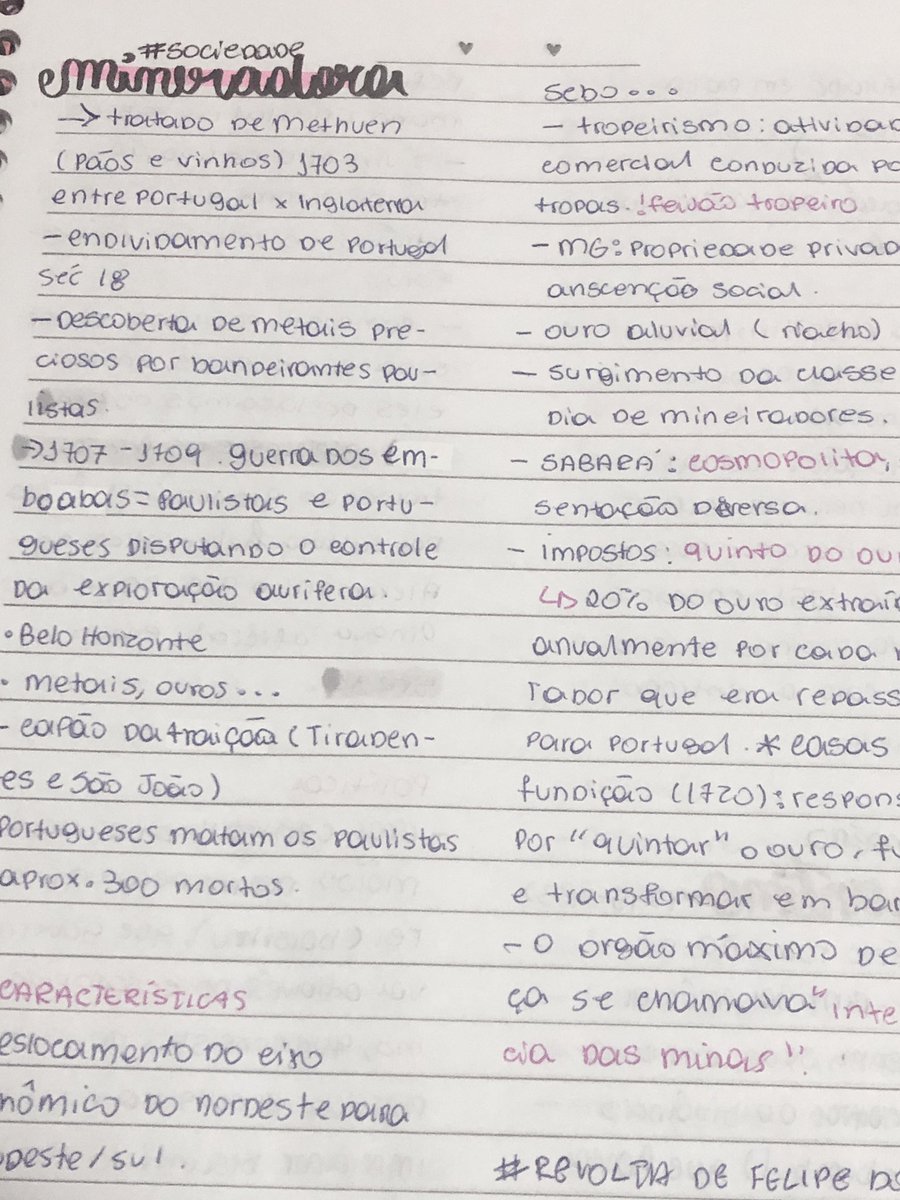 #sociedade
mineradora
→ tratado de methuen
(pãos e vinhos) 1703
entre Portugal x Inglaterra
- endividamento de Portugal
séc 18
- Descoberta de metais pre-
ciosos por bandeirantes pau-
listas.
→ 1707 - 1709. guerra dos em-
boabas = Paulistas e portu-
gueses disputando o controle
da exploração aurífera.
• Belo Horizonte
• metais, ouros...
- capão da traição (Tiraden-
es e São João)
Portugueses matam os paulistas
aprox. 300 mortos.
CARACTERÍSTICAS
eslocamento do eixo
nômico do nordeste para
oeste/sul.
sebo...
- tropeirismo: ativida
comercial conduzida po
tropas. !feijão tropeiro
- MG: Propriedade privad
anscenção social.
- ouro aluvial (riacho)
- surgimento da classe
dia de mineiradores.
- SABARÁ: cosmopolita,
sentação diversa.
- impostos: quinto do ou
↳ 20% do ouro extraí
anualmente por cada
rador que era repass
para portugal. * casas
fundição (1720): respons
por "quintar" o ouro, fu
e transformar em bar
- o orgão máximo de
ça se chamava "inte
cia das minas".
#REVOLTA DE FELIPE DO